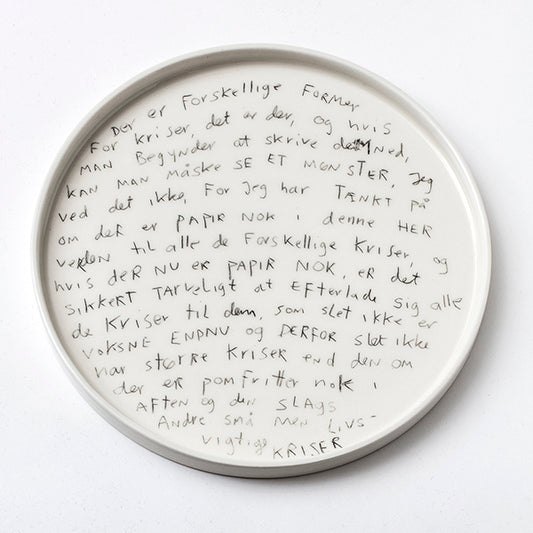 Der er Forskellige Former
For kriser, det er der, og hvis
MAN Begynder at skrive det NED,
KAN MAN MÅSKE SE ET MØNSTER, Jeg
ved det ikke, For Jeg har TÆNKT PÅ
om deR er PAPIR NOK i denne HER
veRden til alle de Forskellige Kriser, og
hvis deR NU eR PAPIR NOK, eR det
SIKKERT TARVELIGT at EFterlade sig alle
de Kriser til dem, som slet ikke er
VOKSNE ENDNU og DERFOR slet ikke
har støRRE KRISER end den om
der er pomfritter nok i
AFTEN og den SLAGS
Andre små men LIVS-
vigtige KRISER